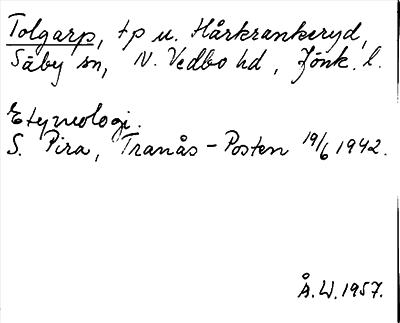 Tolgarp, tp u. Hårkrankeryd,
Säby sn, N. Vedbo hd, Jönk. l.
Etymologi.
S. Pira, Tranås-Posten 19/6 1942.
Å.W.1957.